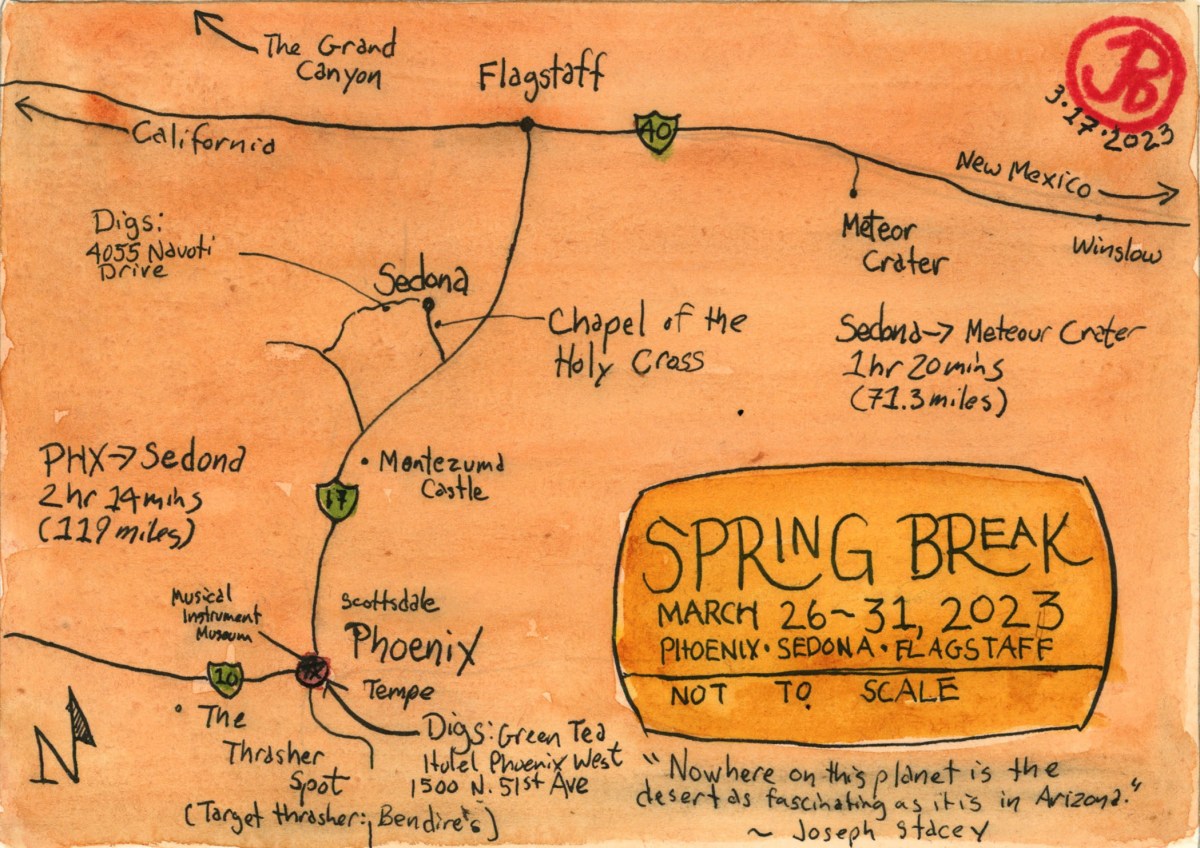 The Grand
Canyon
Flagstaff
JPB
3.17.2023
40
California
New Mexico
Winslow
Meteor
Crater
Digs:
4055 Navoti
Drive
Sedona
Chapel of the
Holy Cross
Sedona → Meteour Crater
1hr 20mins
(71.3 miles)
PHX → Sedona
2hr 14mins
(119 miles)
• Montezuma
Castle
17
SPRING BREAK
MARCH 26~31, 2023
PHOENIX • SEDONA • FLAGSTAFF
NOT TO SCALE
Musical
Instrument
Museum
Scottsdale
Phoenix
Tempe
10
The
Thrasher
Spot
(Target thrasher: Bendire's)
Digs: Green Tea
Hotel Phoenix West
1500 N. 51st Ave
N
"Nowhere on this planet is the
desert as fascinating as it is in Arizona."
~ Joseph Stacey